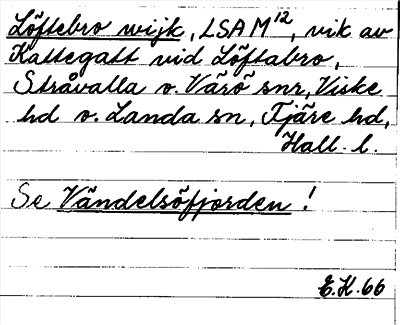 Löftebro wijk, LSA M12, vik av
Kattegatt vid Löftabro,
Stråvalla o. Värö snr, Viske
hd o. Landa sn, Fjäre hd,
Hall. l.
Se Vändelsöfjorden!
E.H.66